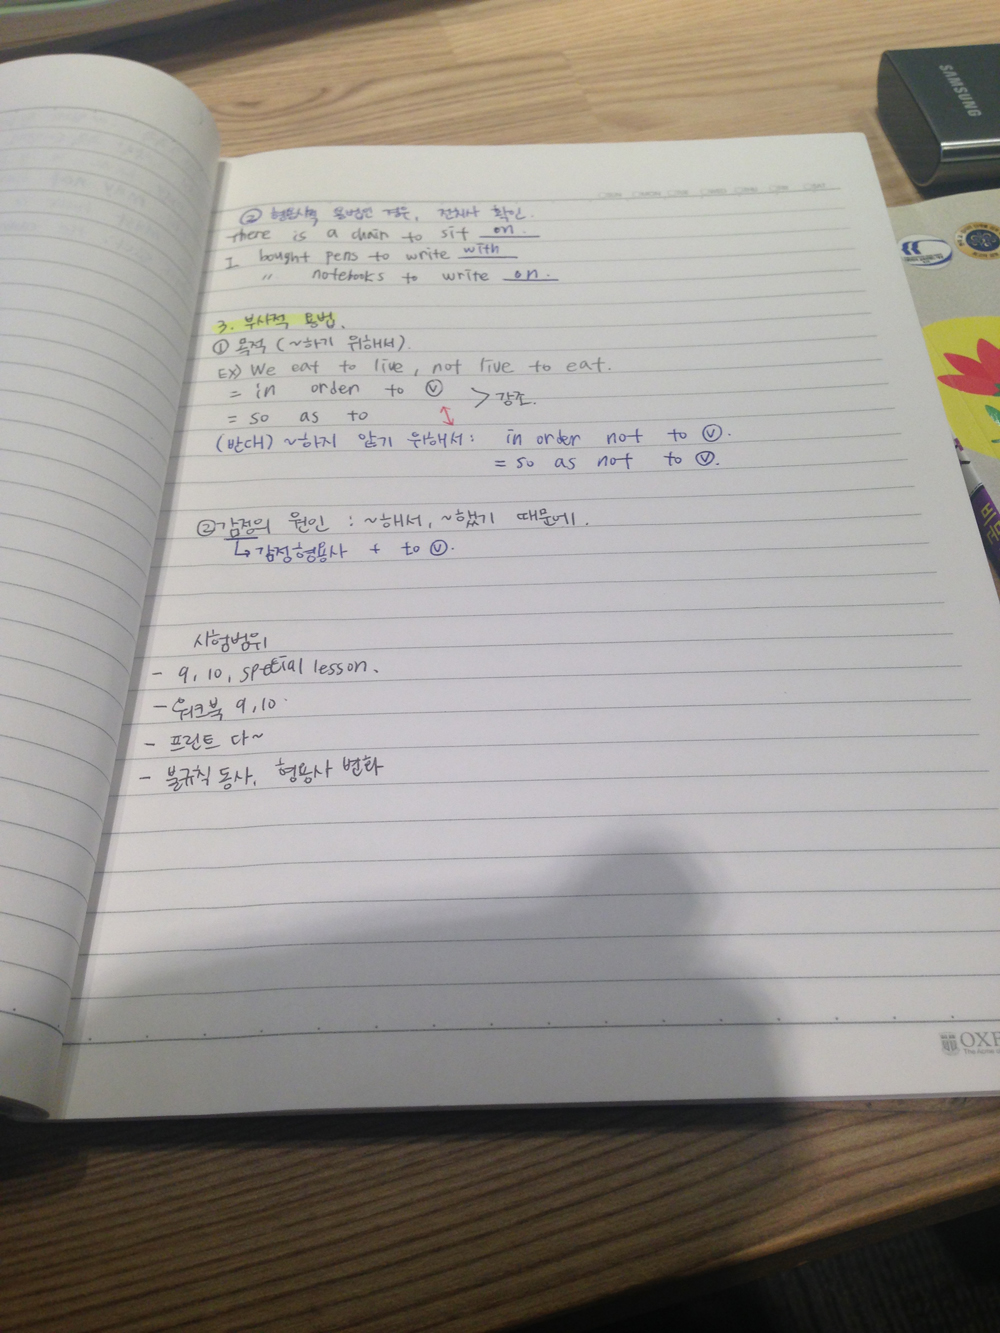 ② 형용사적 용법인 경우, 전치사 확인.
There is a chair to sit on.
I bought pens to write with
〃 notebooks to write on.
3. 부사적 용법.
① 목적 (~하기 위해서).
EX) We eat to live, not live to eat.
= in order to ⓥ > 강조.
= so as to
(반대) ~하지 않기 위해서: in order not to ⓥ.
= so as not to ⓥ.
② 감정의 원인 : ~해서, ~했기 때문에.
↳ 감정형용사 + to ⓥ.
시험범위
- 9, 10, special lesson.
- 워크북 9, 10.
- 프린트 다~
- 불규칙 동사, 형용사 변화
SAMSUNG